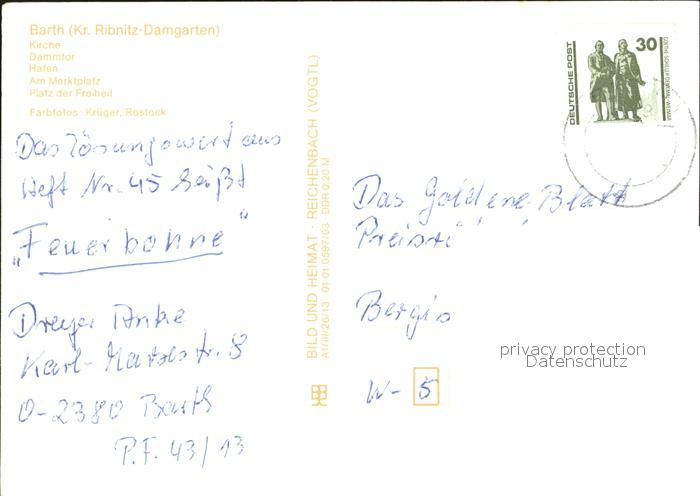 Barth (Kr. Ribnitz-Damgarten)
Kirche
Dammtor
Hafen
Am Marktplatz
Platz der Freiheit
Farbfotos: Krüger, Rostock
Das Lösungswort aus
Heft Nr. 45 heißt
„Feuerbohne“
Dreyer Anke
Karl-Marxstr. 8
O-2380 Barth
P.F. 43/13
BILD UND HEIMAT · REICHENBACH (VOGTL)
A1/III/26/13 01 01 0597/03 DDR 0,20 M
DEUTSCHE POST
30
GOETHE-SCHILLER-DENKMAL, WEIMAR
Das Goldene Blatt
Bergis
W- 5
privacy protection
Datenschutz